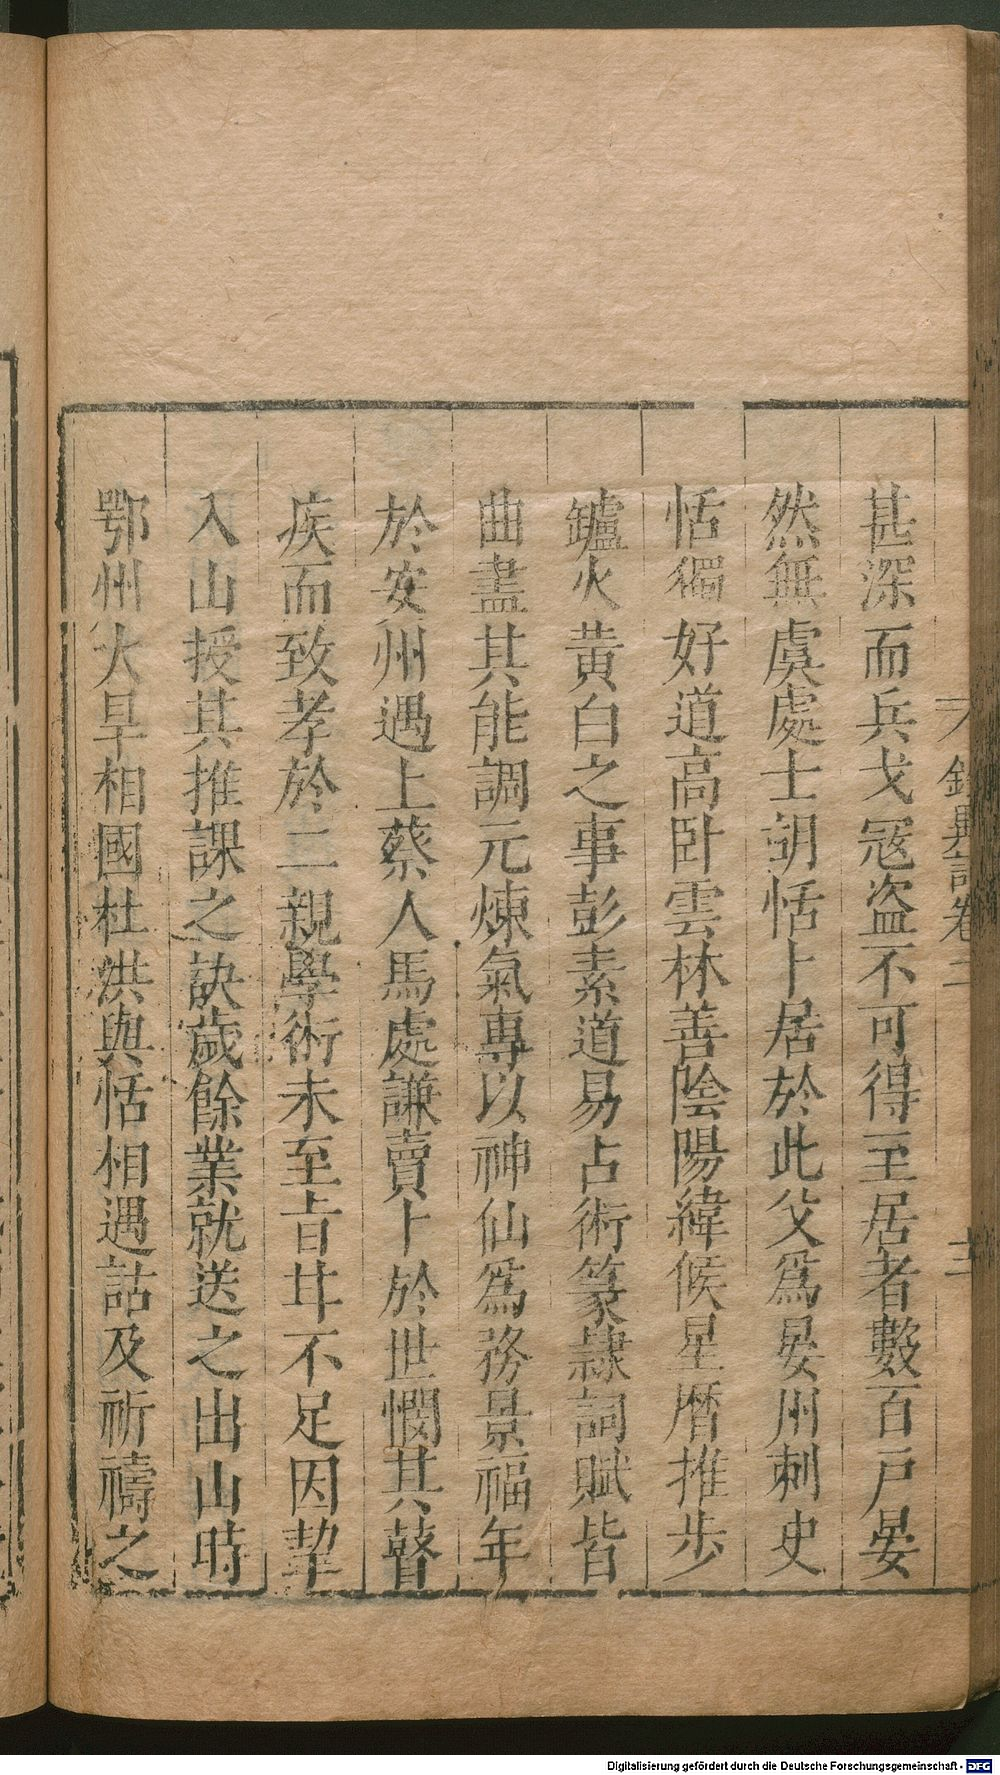 甚深而兵戈冦盜不可得至居者數百戸晏
然無虞處士胡恬卜居於此父爲晏州刺史
恬獨好道高卧雲林善陰陽緯候星曆推步
鑪火黄白之事彭素道易占術篆隷詞賦皆
曲盡其能調元煉氣專以神仙爲務景福年
於安州遇上蔡人馬處謙賣卜於世憫其瞽
疾而致孝於二親學術未至旨甘不足因挈
入山授其推課之訣歲餘業就送之出山時
鄂州大旱相國杜洪與恬相遇詁及祈禱之
録異記卷二
Digitalisierung gefördert durch die Deutsche Forschungsgemeinschaft - DFG